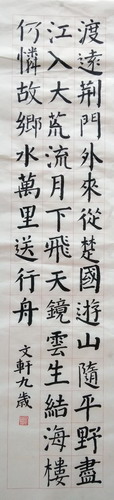 渡遠荆門外來從楚國遊山隨平野盡
江入大荒流月下飛天鏡雲生結海樓
何憐故鄉水萬里送行舟
文軒九歲